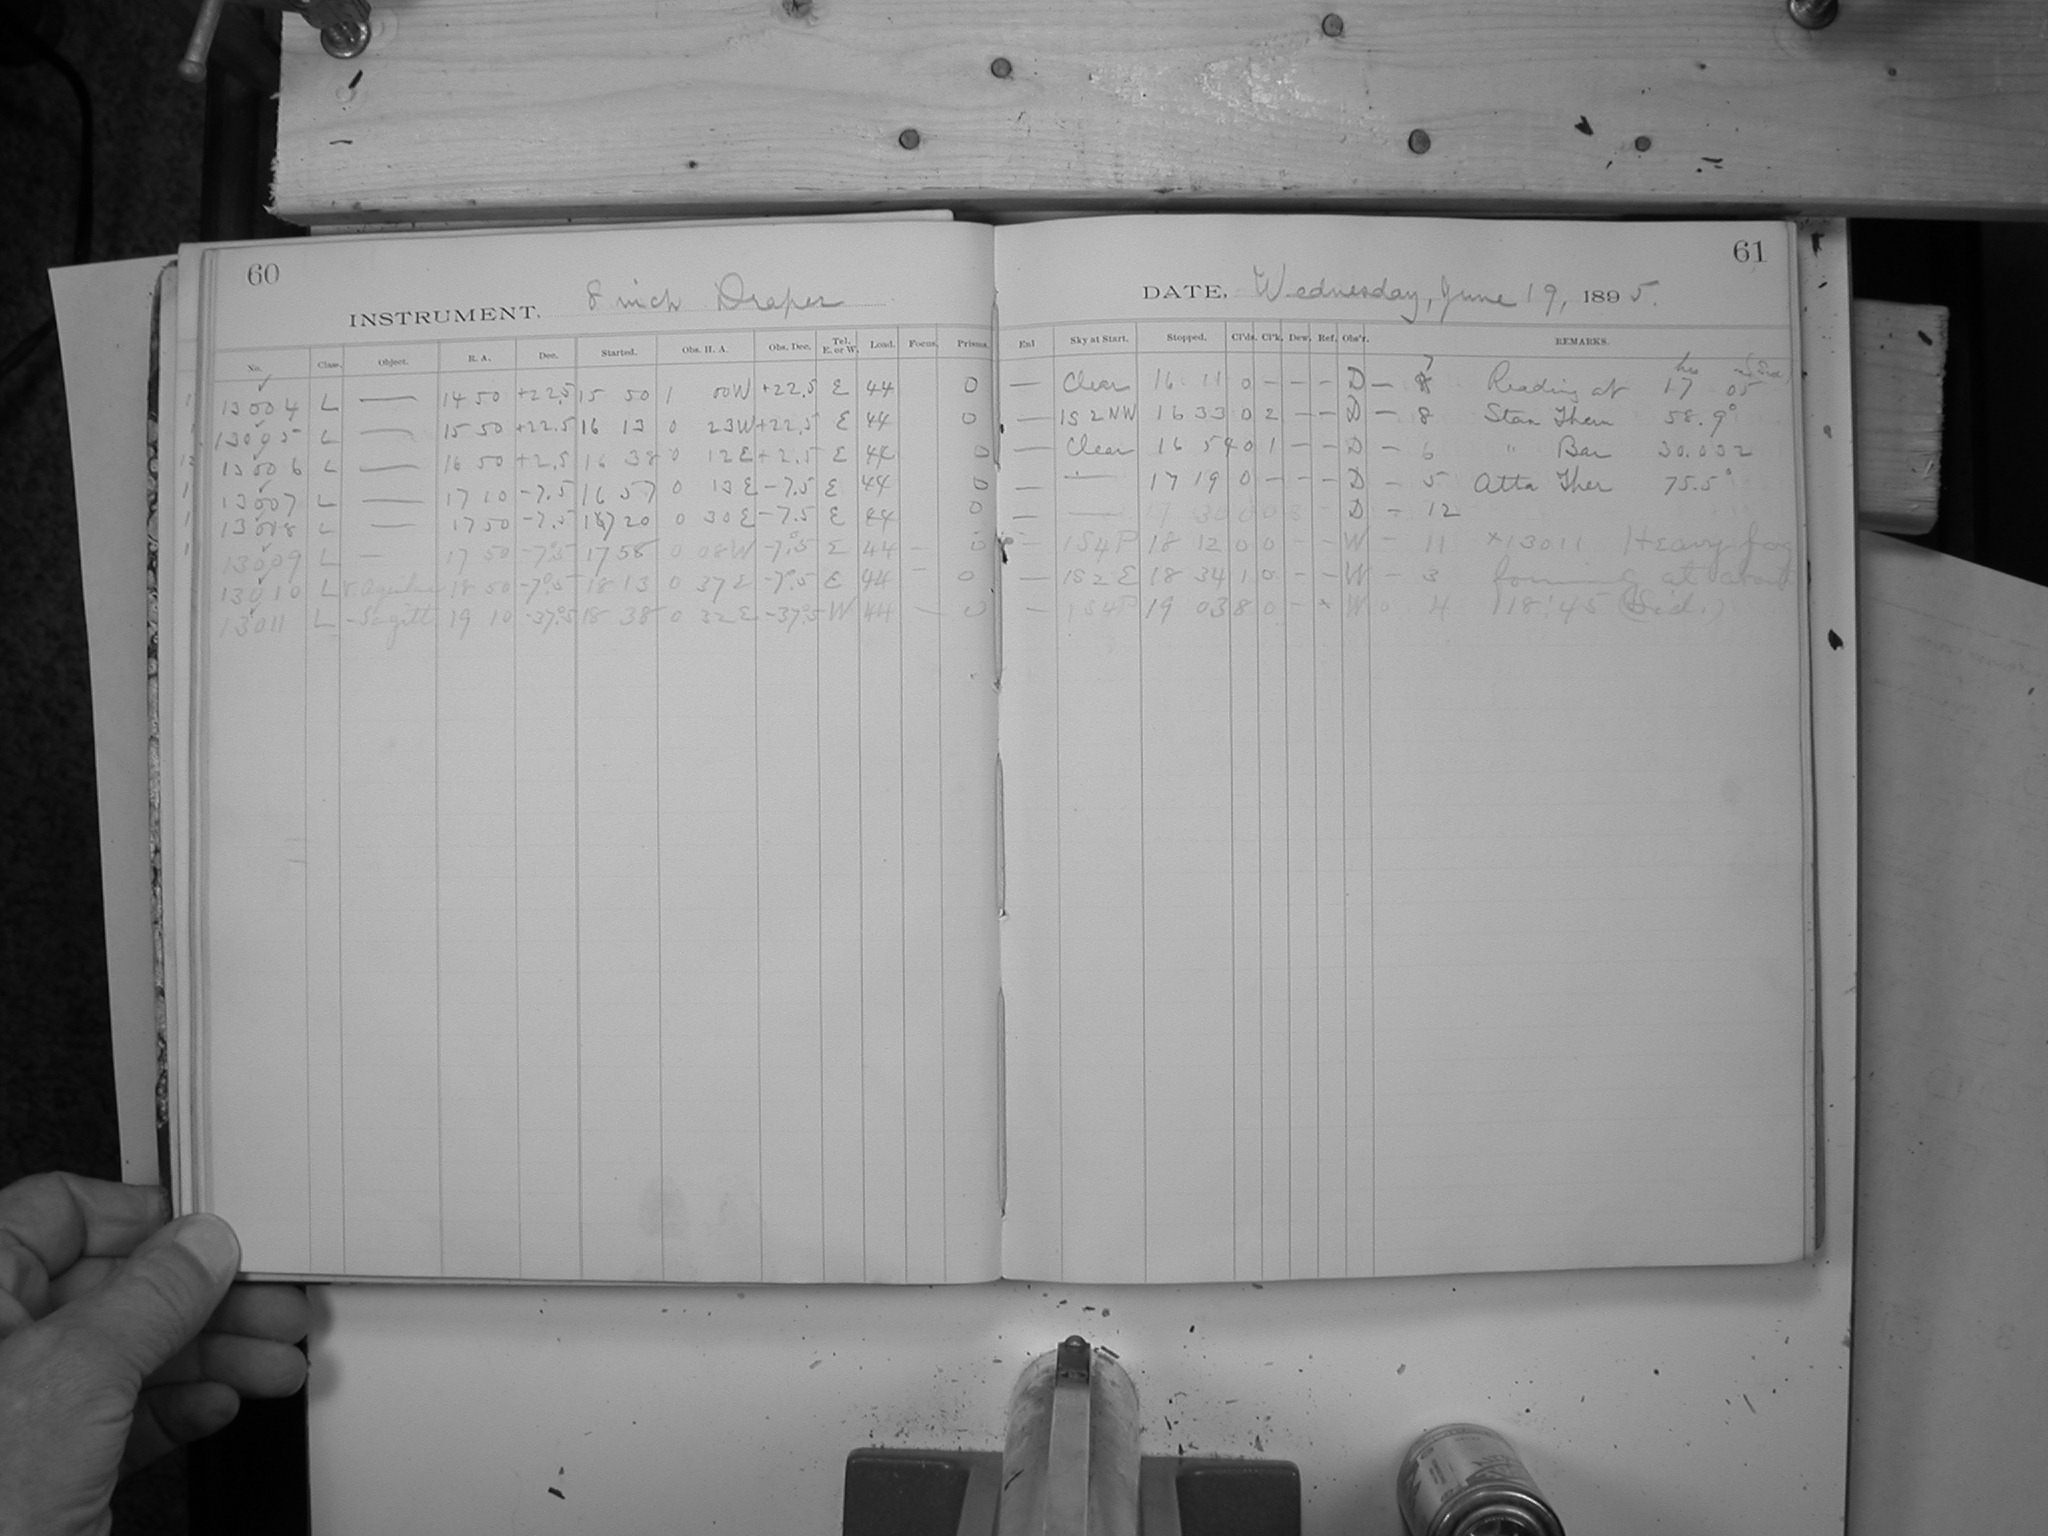 60
INSTRUMENT. 8 inch Draper
No. Class. Object. R. A. Dec. Started. Obs. H. A. Obs. Dec. Tel. E. or W. Load. Focus. Prisms.
13004 L — 14 50 +22.5 15 50 1 00W +22.5 E 44 0
13005 L — 15 50 +22.5 16 13 0 23W +22.5 E 44 0
13006 L — 16 50 +2.5 16 38 0 12E +2.5 E 44 0
13007 L — 17 10 -7.5 16 57 0 13E -7.5 E 44 0
13008 L — 17 50 -7.5 17 20 0 30E -7.5 E 44 0
13009 L — 17 50 -7.5 17 58 0 08W -7.5 E 44 — 0
13010 L Aquilae 18 50 -7.5 18 13 0 37E -7.5 E 44 — 0
13011 L -Sagitt 19 10 -37.5 18 38 0 32E -37.5 W 44 — 0
61
DATE, Wednesday, June 19, 1895.
Enl Sky at Start. Stopped. Cl'ds. Cl'k. Dew. Ref. Obs'r. REMARKS.
— Clear 16 11 0 - - - D - 7 Reading at 17 hrs 05 m (Sid)
— 1S2NW 16 33 0 2 - - D - 8 Stan Them 58.9°
— Clear 16 54 0 1 - - D - 6 " Bar 30.032
— — 17 19 0 - - - D - 5 Atta Ther 75.5°
— — 17 30 0 0 D - 12
— 1S4P 18 12 0 0 - - W - 11 ×13011 Heavy fog
— 1S2E 18 34 1 0 - - W - 3 forming at about
— 1S4P 19 03 8 0 - × W 0 4 18:45 (Sid.)